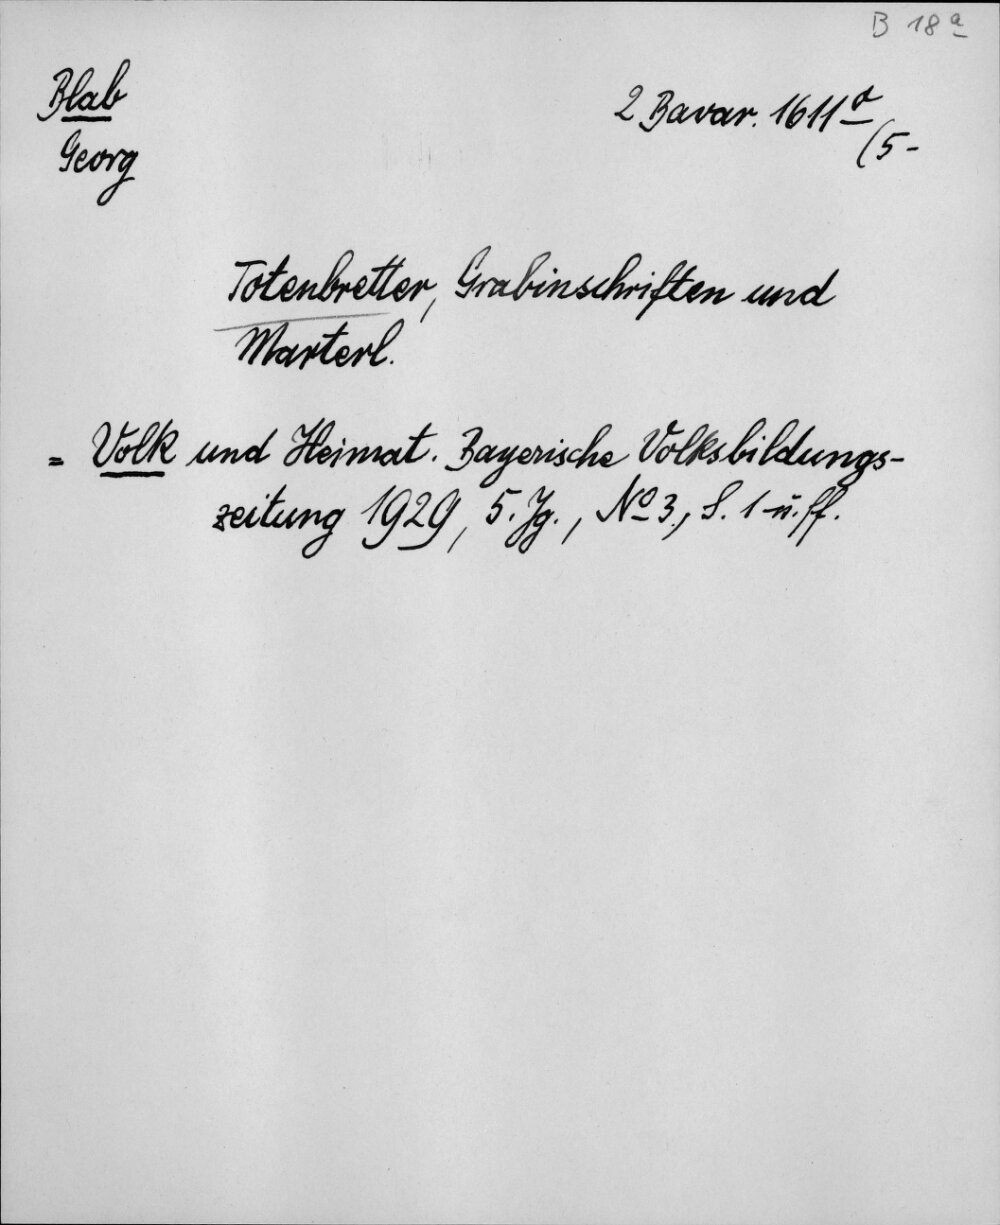 B 18 a
Blab
Georg
2 Bavar. 1611 d
(5-
Totenbretter, Grabinschriften und
Marterl.
= Volk und Heimat. Bayerische Volksbildungs-
zeitung 1929, 5. Jg., No 3, S. 1 u. ff.